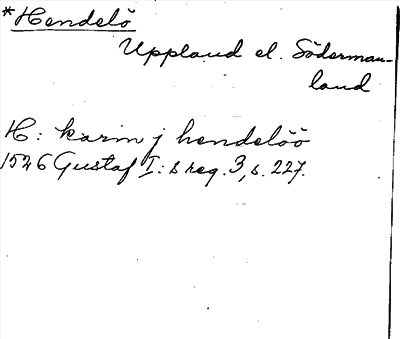 *Hendelö
Uppland el. Söderman-
land
H: karin j hendelöö
1526 Gustaf I:s reg. 3, s. 227.